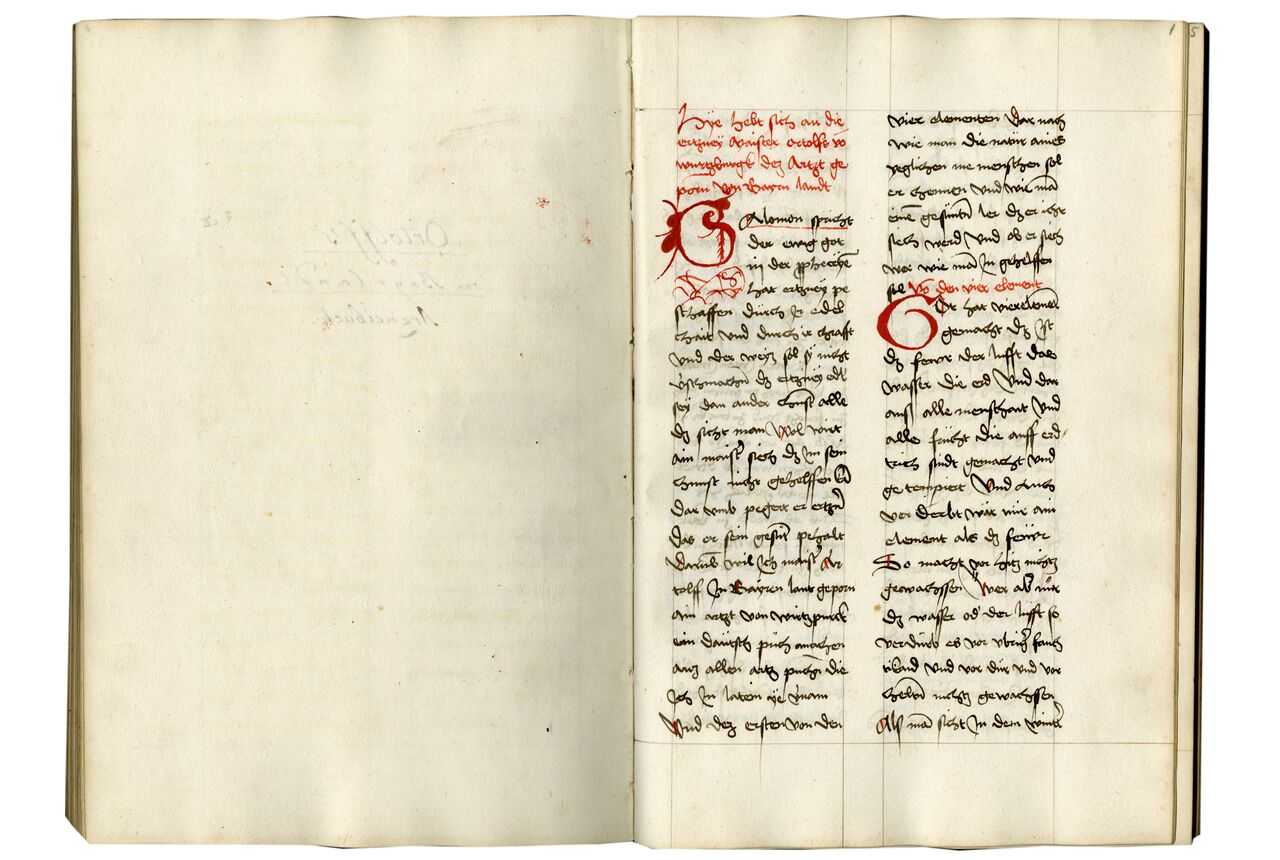 Hye hebt sich an die
ertzney Maister ortolfs vo
wurtzburgk dez Artzt ge
porn von Bayrn landt
Salomon spricht
der ewig got
in der
hat ertzney pe
schaffen durch ir edel
chait vnd durch ir chrafft
vnd der weyz sol sy nicht
dz ertzney edl
sey dan ander chunst alle
dz sicht man wol wirt
ain maister siech dz im sein
chunst nicht gehelffen
Dar vmb pegert er ertzn
das er sein gesunt pehalt
darumb wil Ich maister Or
tolff In Bayren lant geporn
ain artzt von wirtzpurck
ein däutsch puch machen
auz allen artz puchn die
Ich In latein ye v̈nam
Vnd dez ersten von den
vier elementen Dar nach
wie man die natur aines
yeglichen menschen sol
er chennen Vnd wie man
einen gesunten ler dz er icht
siech werd Vnd ob er siech
wer wie man Im gehelffen
sol Vo den vier element
Got hat vier element
gemacht dz ist
dz fewr der lufft das
wasser die erd Vnd dar
auss alle menschait Vnd
alle frucht die auff erd
trich sindt gemacht Vnd
getempiert Vnd auch
ver derbt wär nür ain
element als dz fewr
So macht vor hitz nichtz
gewachssen Wer aber nür
dz wasser oder der lufft so
verdurb es vor vbriger feuch
tikaid Vnd vor dür vnd vor
chelten nichtz gewachssen
Als man sicht In dem winter
1
5
Ortolffs
von Bayrlandt
Arzneibuch.